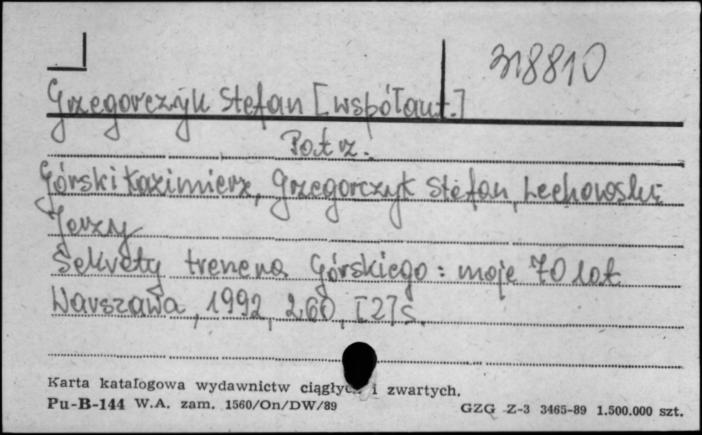 318810
Grzegorczyk Stefan [współaut.]
Patrz.
Górski Kazimierz, Grzegorczyk Stefan, Lechowski
Jerzy
Sekrety trenera Górskiego : moje 70 lat
Warszawa, 1992, 260, [2] s.
Karta katalogowa wydawnictw ciągłych i zwartych.
Pu-B-144 W.A. zam. 1560/On/DW/89 GZG Z-3 3465-89 1.500.000 szt.